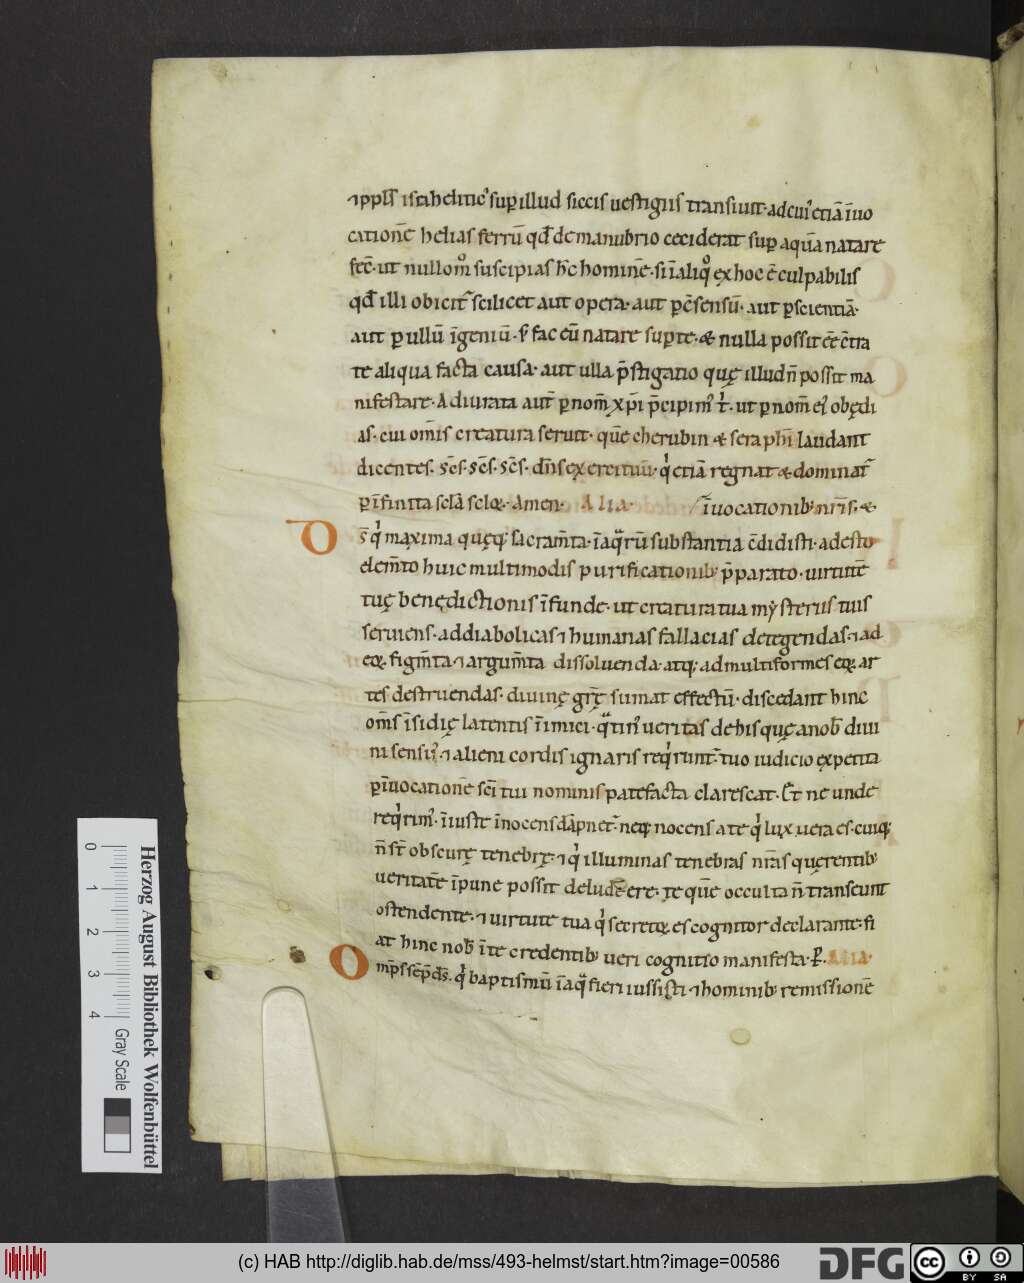 ⁊ppl̄s isrͬaheliticꝰ suꝑ illud siccis uestigiis transiuit· ad cuiꝰ etiā īuo
cationē helias ferrū qđ de manubrio ceciderat suꝑ aquā natare
fec̄· ut nullom̊ suscipias hc̄ hominē· si ī aliq̊ ex hoc ē culpabilis
qđ illi obicit᷑ scilicet aut opera· aut ꝑ c̄sensū· aut ꝑ scientiā·
aut ꝑ ullū īgeniū· s; fac eū natare sup te· & nulla possit eē c̄tra
te aliqua facta causa· aut ulla p̄stigatio quę illud n̄ possit ma
nifestare· Adiurata aut̄ ꝑ nom̄ xp̄i p̄cipimꝰ t᷑· ut ꝑ nom̄ eiꝰ obędi
as· cui om̄is creatura seruit· quē cherubin & seraphī laudant
dicentes· sc̄s· sc̄s· sc̄s· dn̄s exercituū· qͥ etiā regnat & dominat᷑
ꝑ īfinita sclā scloꝝ· Amen· Alia· īuocationibꝫ nr̄is· &
Ds̄ qͥ maxima quęqꝫ sacram̄ta· ī aqͣrū substantia c̄didisti· adesto
elem̄to huic multimodis purificationibꝫ p̄parato· uirtutē
tuę benędictionis īfunde· ut creatura tua mẏsteriis tuis
seruiens· ad diabolicas ⁊ humanas fallacias detegendas· ⁊ ad
eoꝝ figm̄ta ⁊ argum̄ta dissoluenda· atqꝫ ad multiformes eoꝝ ar
tes destruendas· diuinę gr̄ę sumat effectū· discedant hinc
om̄s īsidię latentis īimici· qͣtinꝰ ueritas de his quę a nob̄ diui
ni sensꝰ· ⁊ alieni cordis ignaris reqͥrunt᷑· tuo iudicio expetita
ꝑ īuocationē sc̄i tui nominis patefacta clarescat· Et ne unde
reqͥrimꝰ· īiuste īnocens dāpnet᷑· neqꝫ nocens a te qͥ lux uera es· cuiqꝫ
n̄ st̄ obscurę tenebrę· ⁊ qͥ illuminas tenebras nr̄as quęrentibꝫ
ueritatē īpune possit deludere· te quē occulta n̄ transeunt
ostendente· ⁊ uirtute tua qͥ secretoꝝ es cognitor declarante· fi
at hinc nob̄ ī te credentibꝫ ueri cognitio manifesta· ꝑ· Alia·
Omp̄s semp̄ ds̄· qͥ baptismū ī aqͣ fieri iussisti· ⁊ hominibꝫ remissionē
Herzog August Bibliothek Wolfenbüttel
0 1 2 3 4 Gray Scale
(c) HAB http://diglib.hab.de/mss/493-helmst/start.htm?image=00586
DFG
cc
BY SA